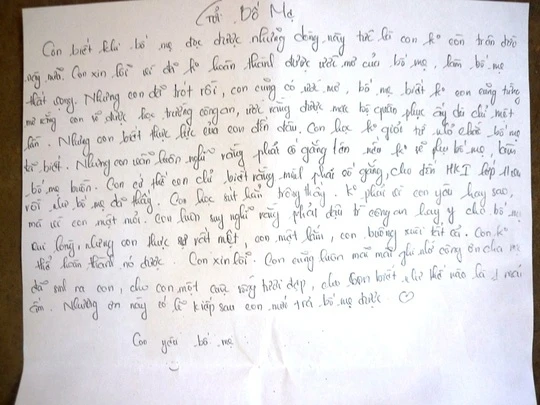 Gửi Bố Mẹ
Con biết khi bố mẹ đọc được những dòng này tức là con ko còn trên đời
này nữa. Con xin lỗi vì đã ko hoàn thành được ước mơ của bố mẹ, làm bố mẹ
thất vọng. Nhưng con đã trót rồi, con cũng có ước mơ, bố mẹ biết ko con cũng từng
mơ rằng con sẽ được học trường công an, ước rằng được mặc bộ quân phục ấy dù chỉ một
lần. Nhưng con biết thực lực của con đến đâu. Con học ko giỏi từ nhỏ chắc bố mẹ
đã biết. Nhưng con luôn luôn nghĩ rằng phải cố gắng lên nếu ko sẽ phụ bố mẹ, làm
bố mẹ buồn. Con cứ thế con chỉ biết rằng mình phải cố gắng, cho đến HKI lớp
rồi như bố mẹ đã thấy. Con học sút hẳn trông thấy. Ko phải vì con yêu hay sao
mà vì con mệt mỏi. Con luôn suy nghĩ rằng phải đậu trg công an hay y cho bố mẹ
vui lòng, nhưng con thực sự rất mệt, con mệt lắm, con buông xuôi tất cả. Con ko
thể hoàn thành nó được. Con xin lỗi. Con cũng luôn mãi mãi ghi nhớ công ơn cha mẹ
đã sinh ra con, cho con một cuộc sống tươi đẹp, cho con biết như thế nào là 1 mái
ấm. Nhưng ơn này có lẽ kiếp sau con mới trả bố mẹ được ♡
Con yêu bố mẹ